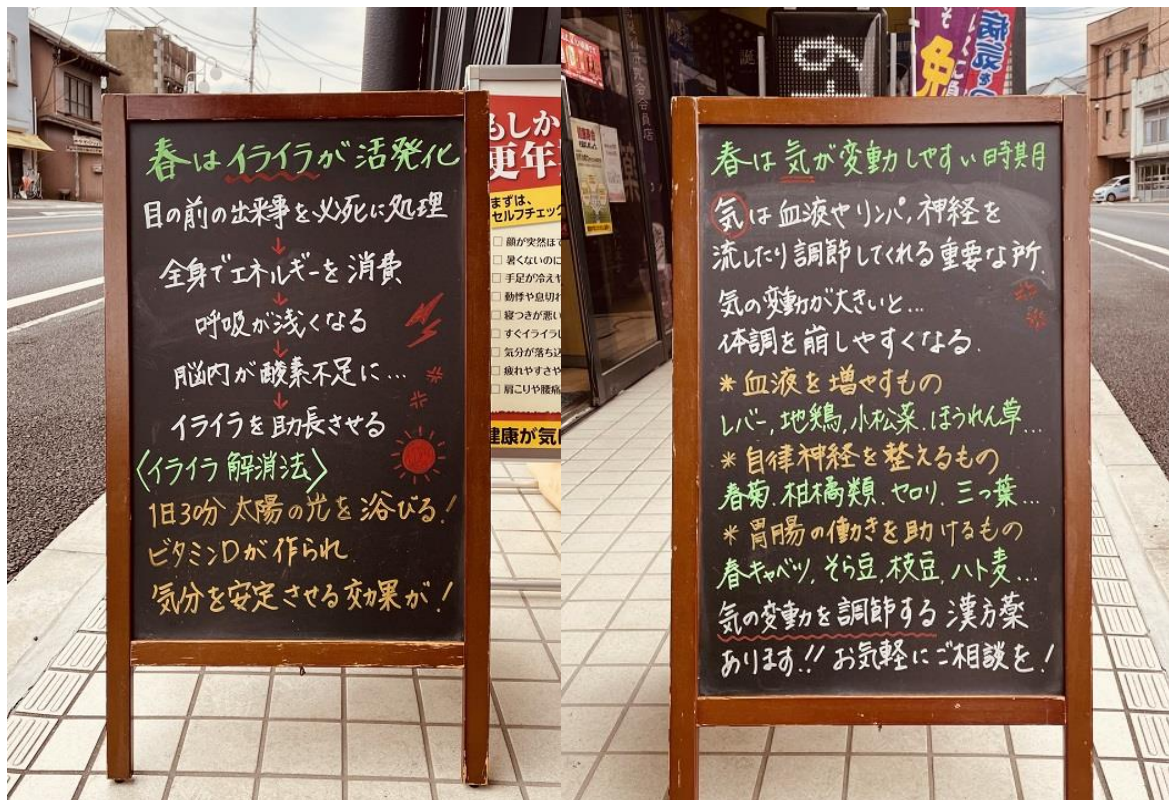 春はイライラが活発化
目の前の出来事を必死に処理
↓
全身でエネルギーを消費
↓
呼吸が浅くなる
↓
脳内が酸素不足に…
↓
イライラを助長させる
〈イライラ解消法〉
1日30分太陽の光を浴びる!
ビタミンDが作られ
気分を安定させる効果が!
もしか
更年
まずは、
セルフチェック
□顔が突然ほて
□暑くないのに
□手足が冷えや
□動悸や息切れ
□寝つきが悪い
□すぐイライラし
□気分が落ち込
□疲れやすさや
□肩こりや腰痛
健康が気
春は気が変動しやすい時期
気は血液やリンパ,神経を
流したり調節してくれる重要な所.
気の変動が大きいと…
体調を崩しやすくなる.
*血液を増やすもの
レバー,地鶏,小松菜.ほうれん草…
*自律神経を整えるもの
春菊.柑橘類.セロリ.三つ葉…
*胃腸の働きを助けるもの
春キャベツ.そら豆.枝豆.ハト麦…
気の変動を調節する漢方薬
あります!!お気軽にご相談を!
病気を
免